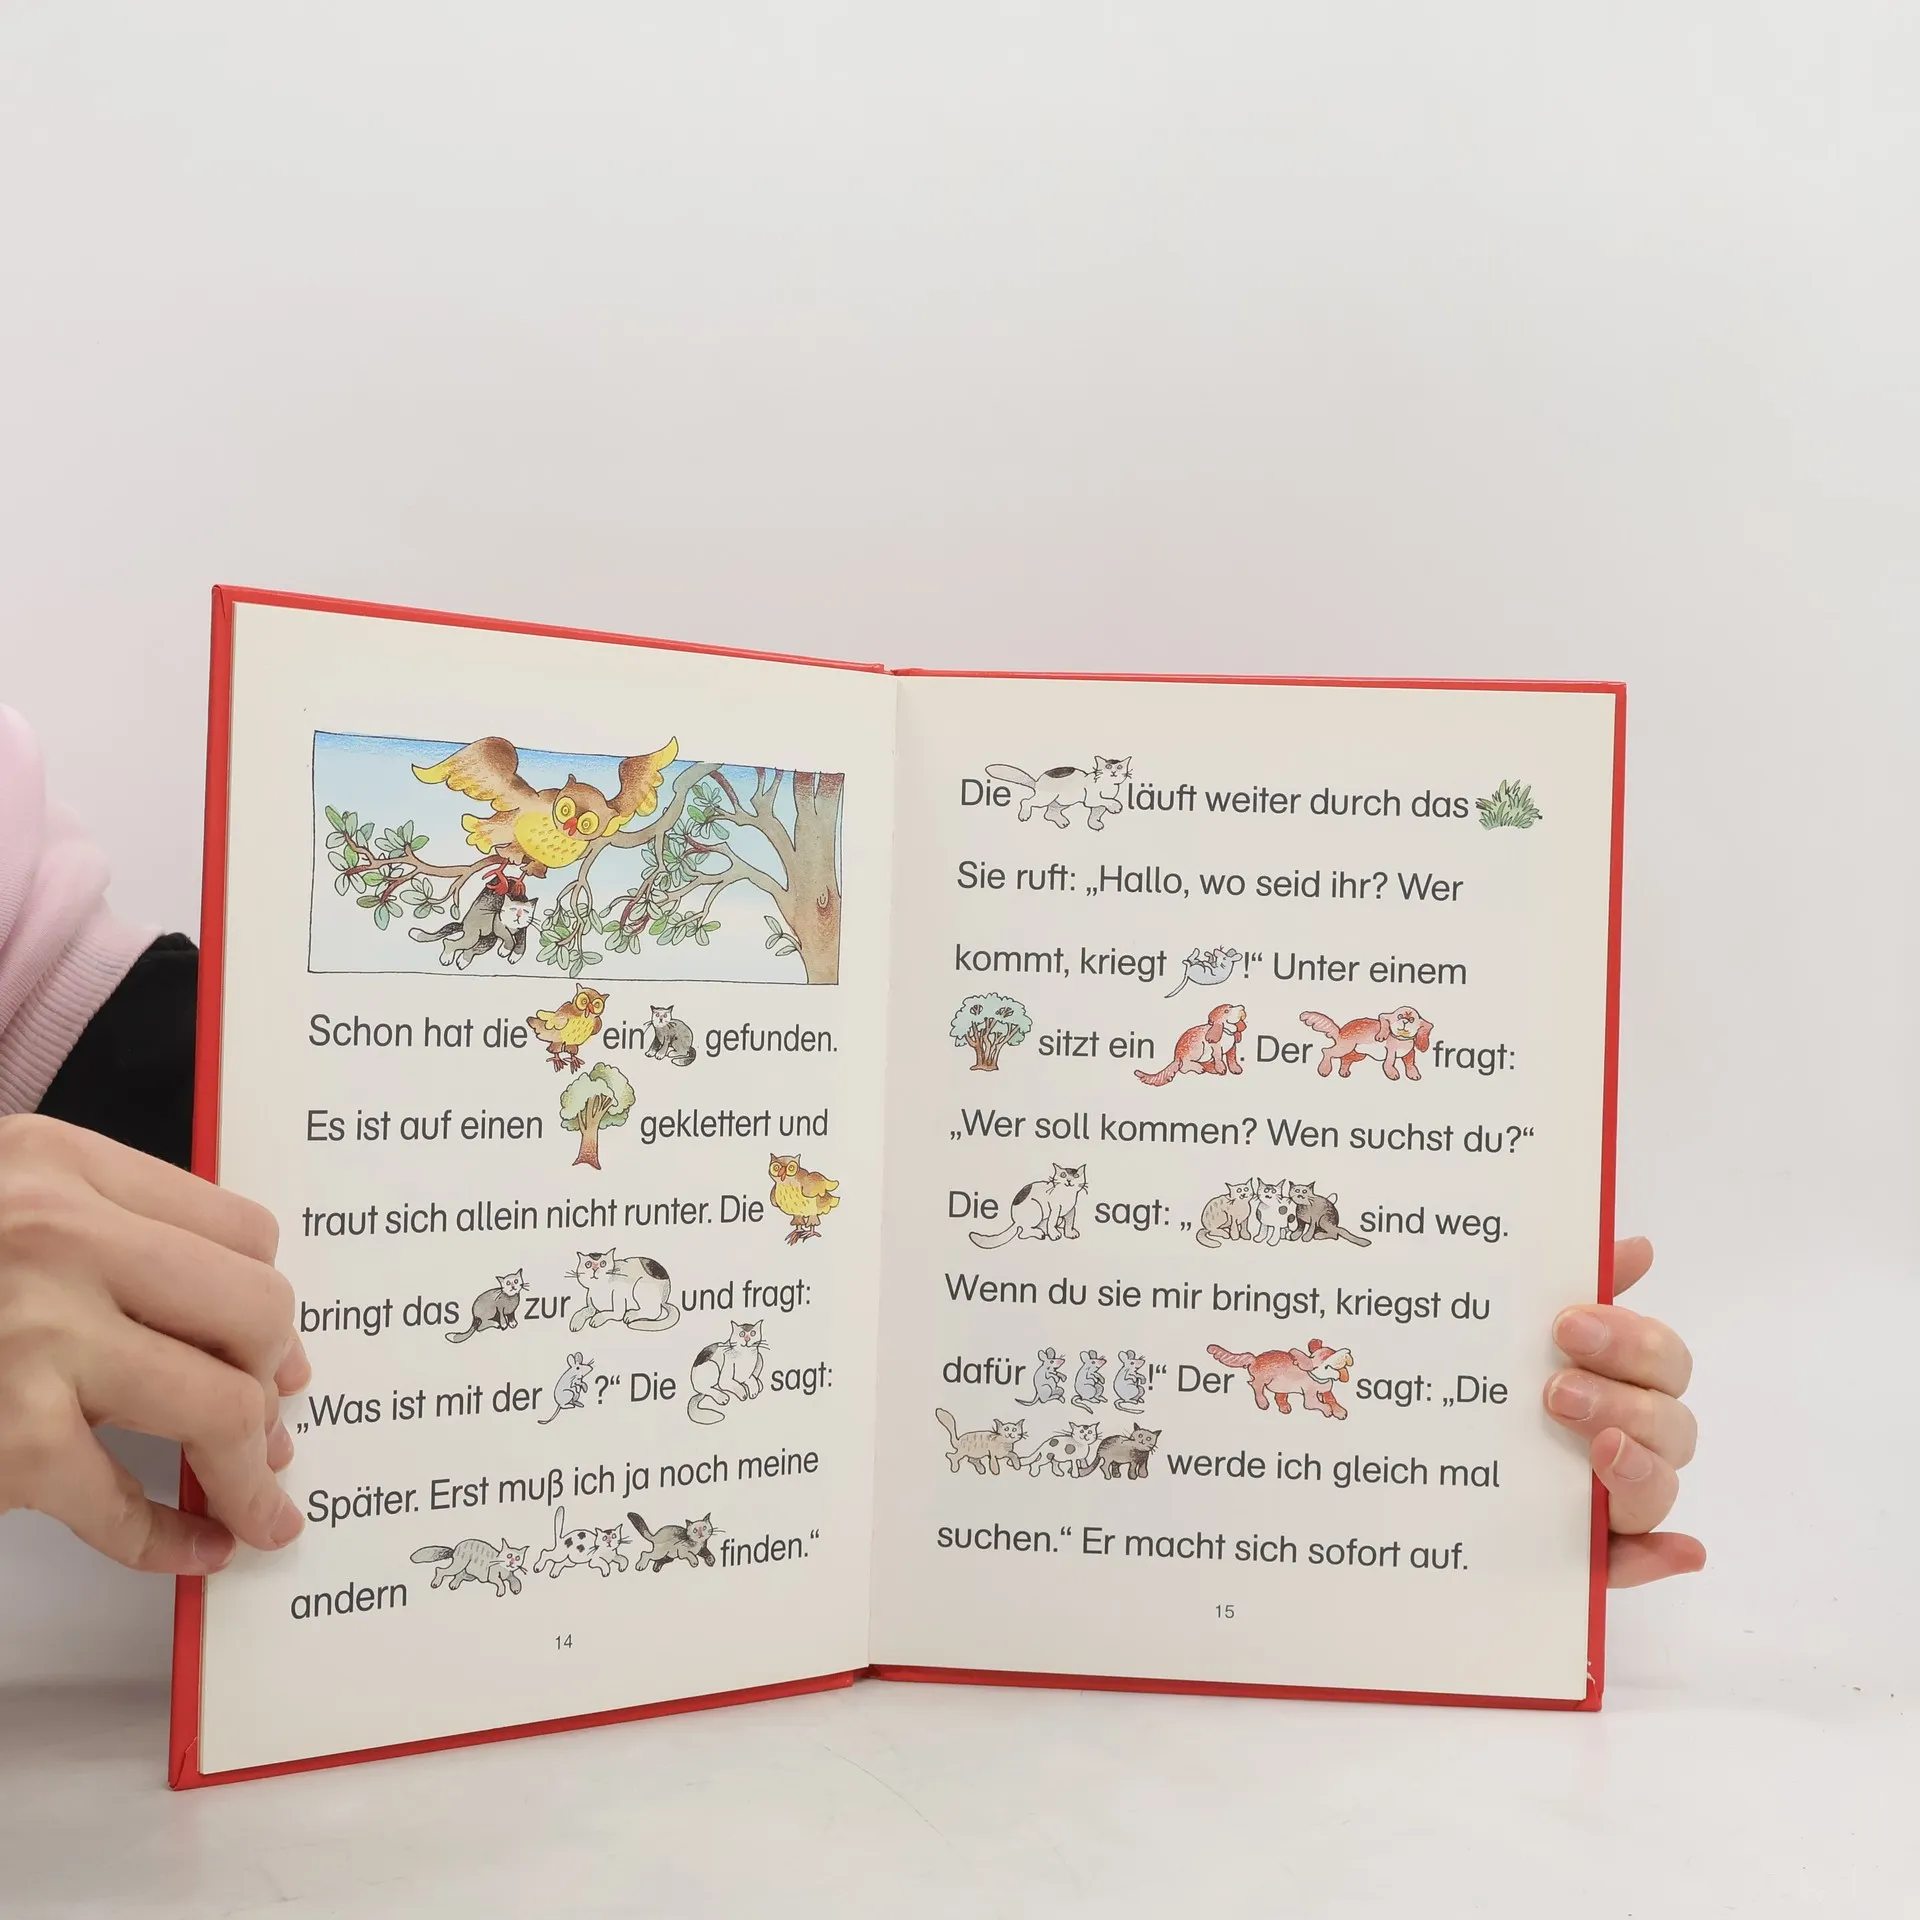 Schon hat die ein gefunden.
Es ist auf einen geklettert und
traut sich allein nicht runter. Die
bringt das zur und fragt:
„Was ist mit der ?“ Die sagt:
„Später. Erst muß ich ja noch meine
andern finden.“
14
Die läuft weiter durch das .
Sie ruft: „Hallo, wo seid ihr? Wer
kommt, kriegt !“ Unter einem
sitzt ein . Der fragt:
„Wer soll kommen? Wen suchst du?“
Die sagt: „ sind weg.
Wenn du sie mir bringst, kriegst du
dafür !“ Der sagt: „Die
werde ich gleich mal
suchen.“ Er macht sich sofort auf.
15